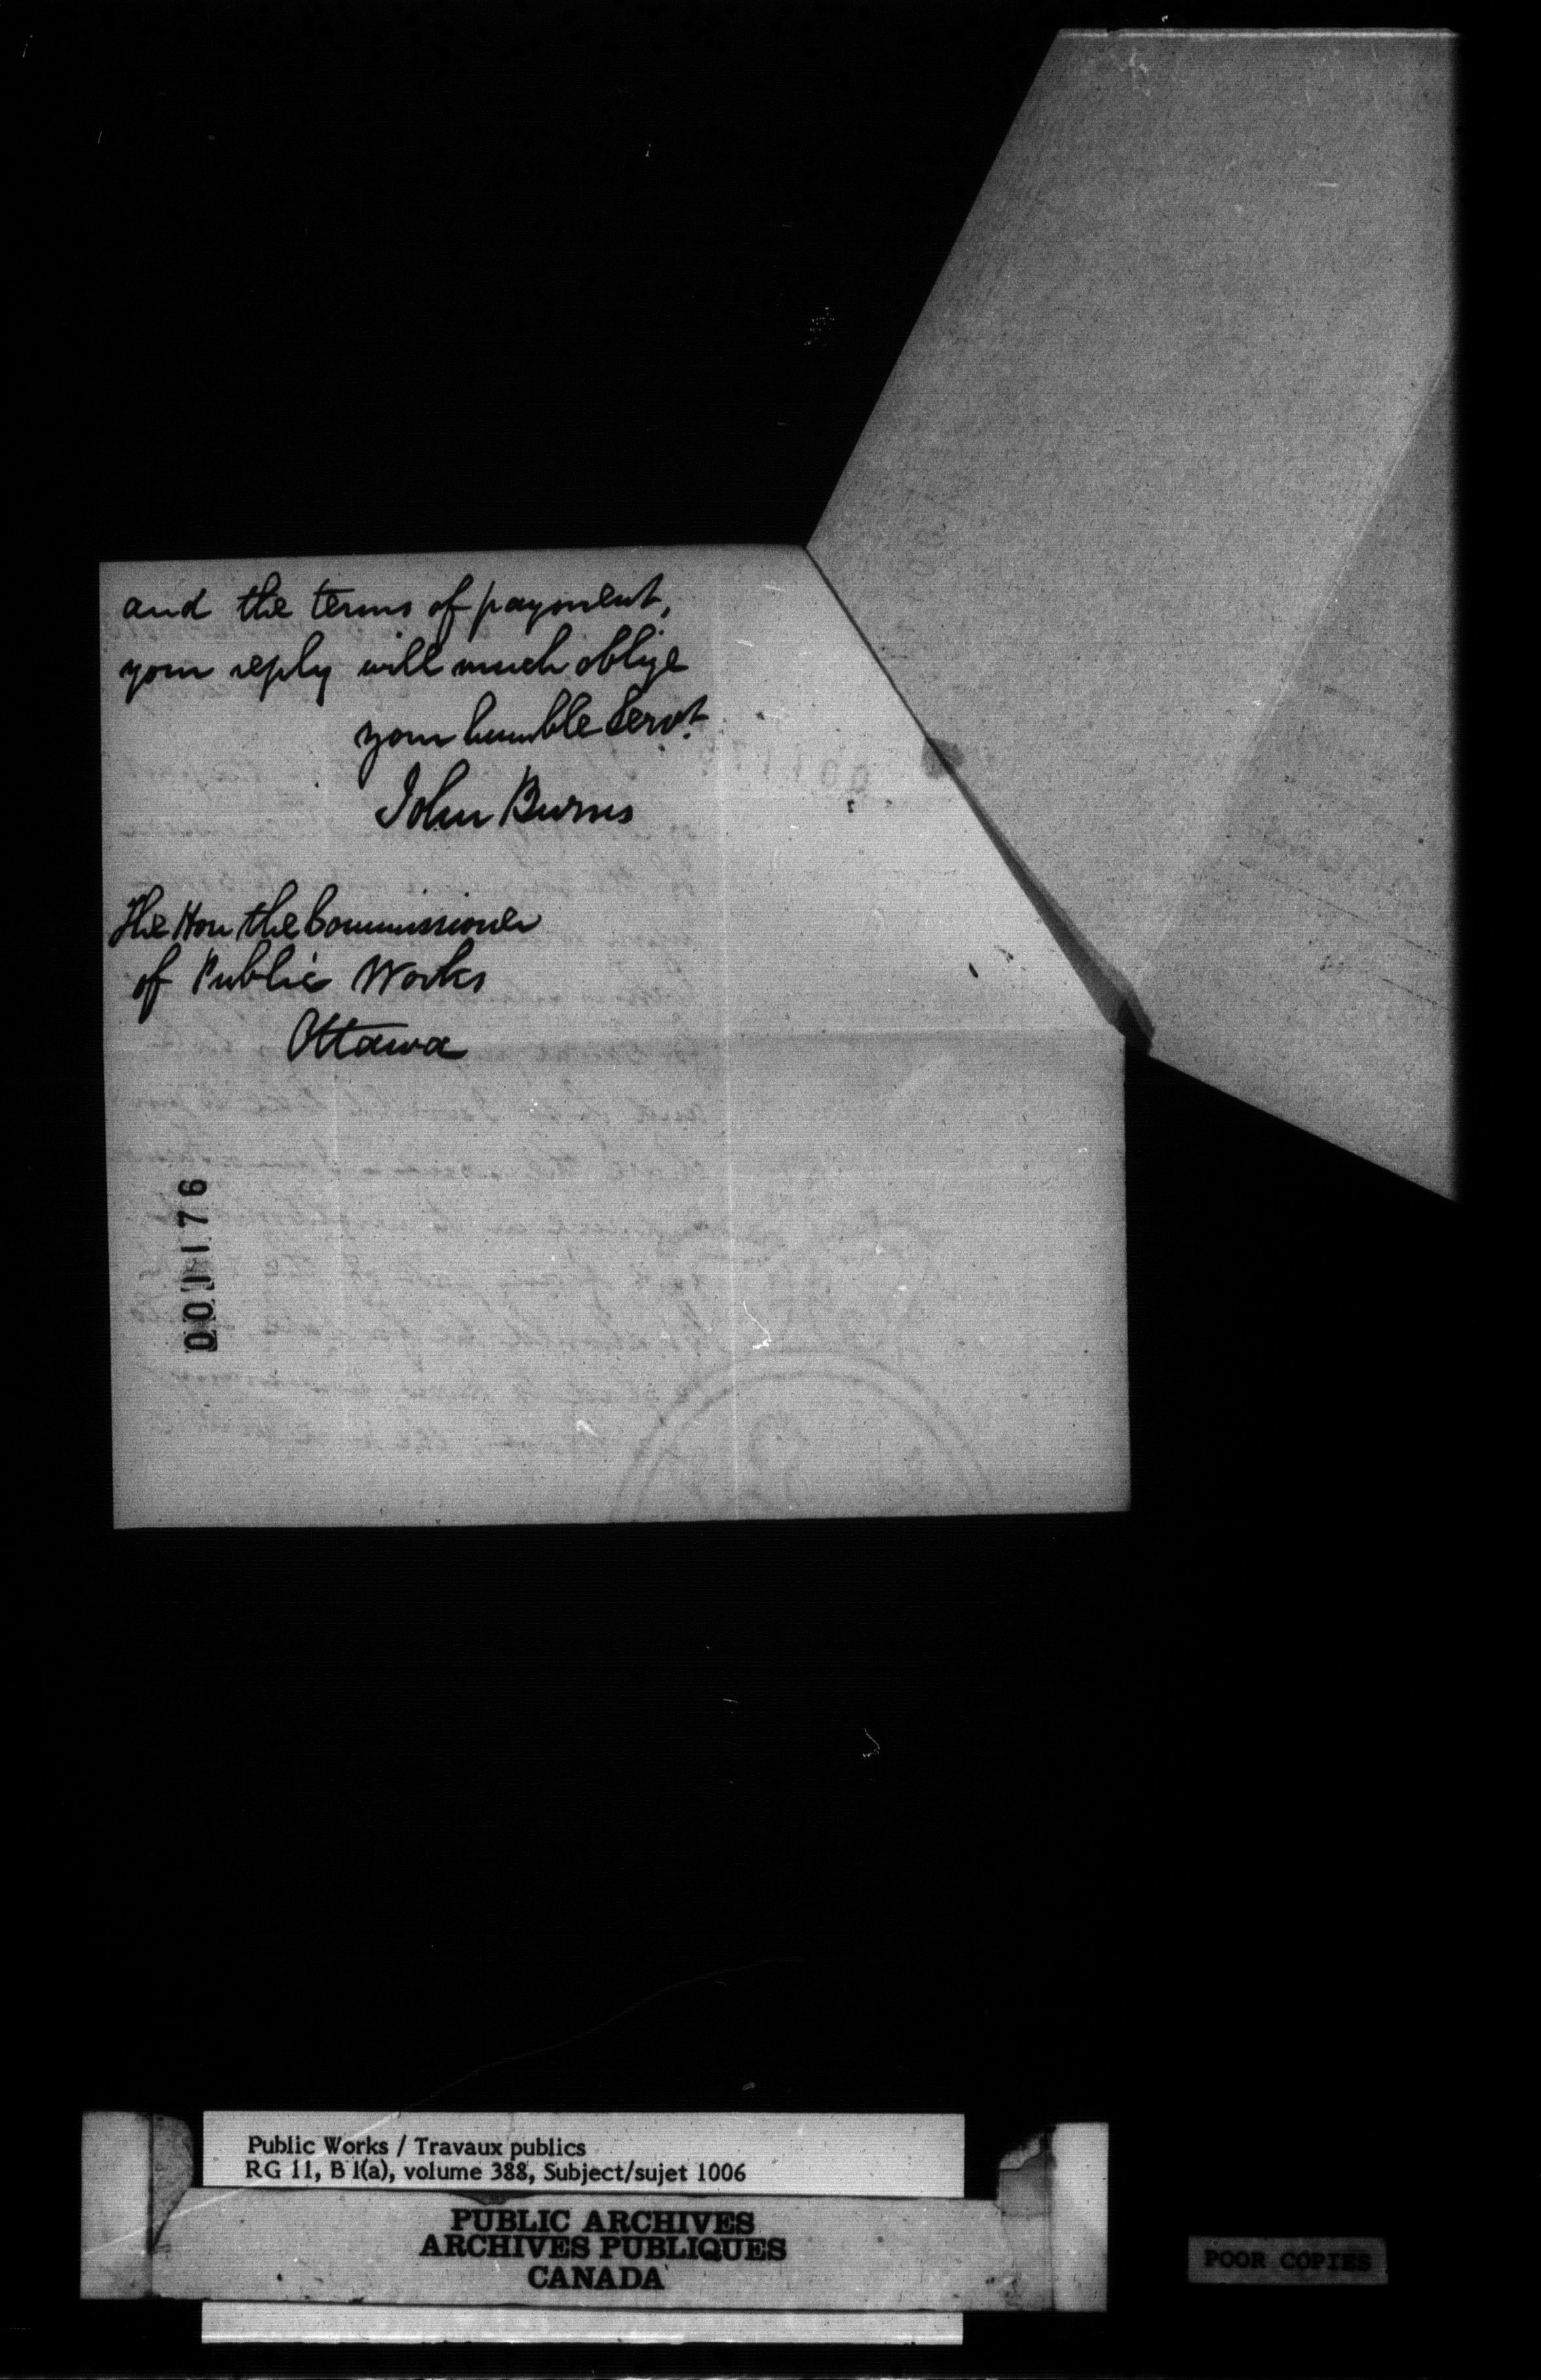 and the terms of payment,
your reply will much oblige
your humble Servt.
John Burns
The Hon the Commissioner
of Public Works
Ottawa
001176
Public Works / Travaux publics
RG 11, B 1(a), volume 388, Subject/sujet 1006
PUBLIC ARCHIVES
ARCHIVES PUBLIQUES
CANADA
POOR COPIES